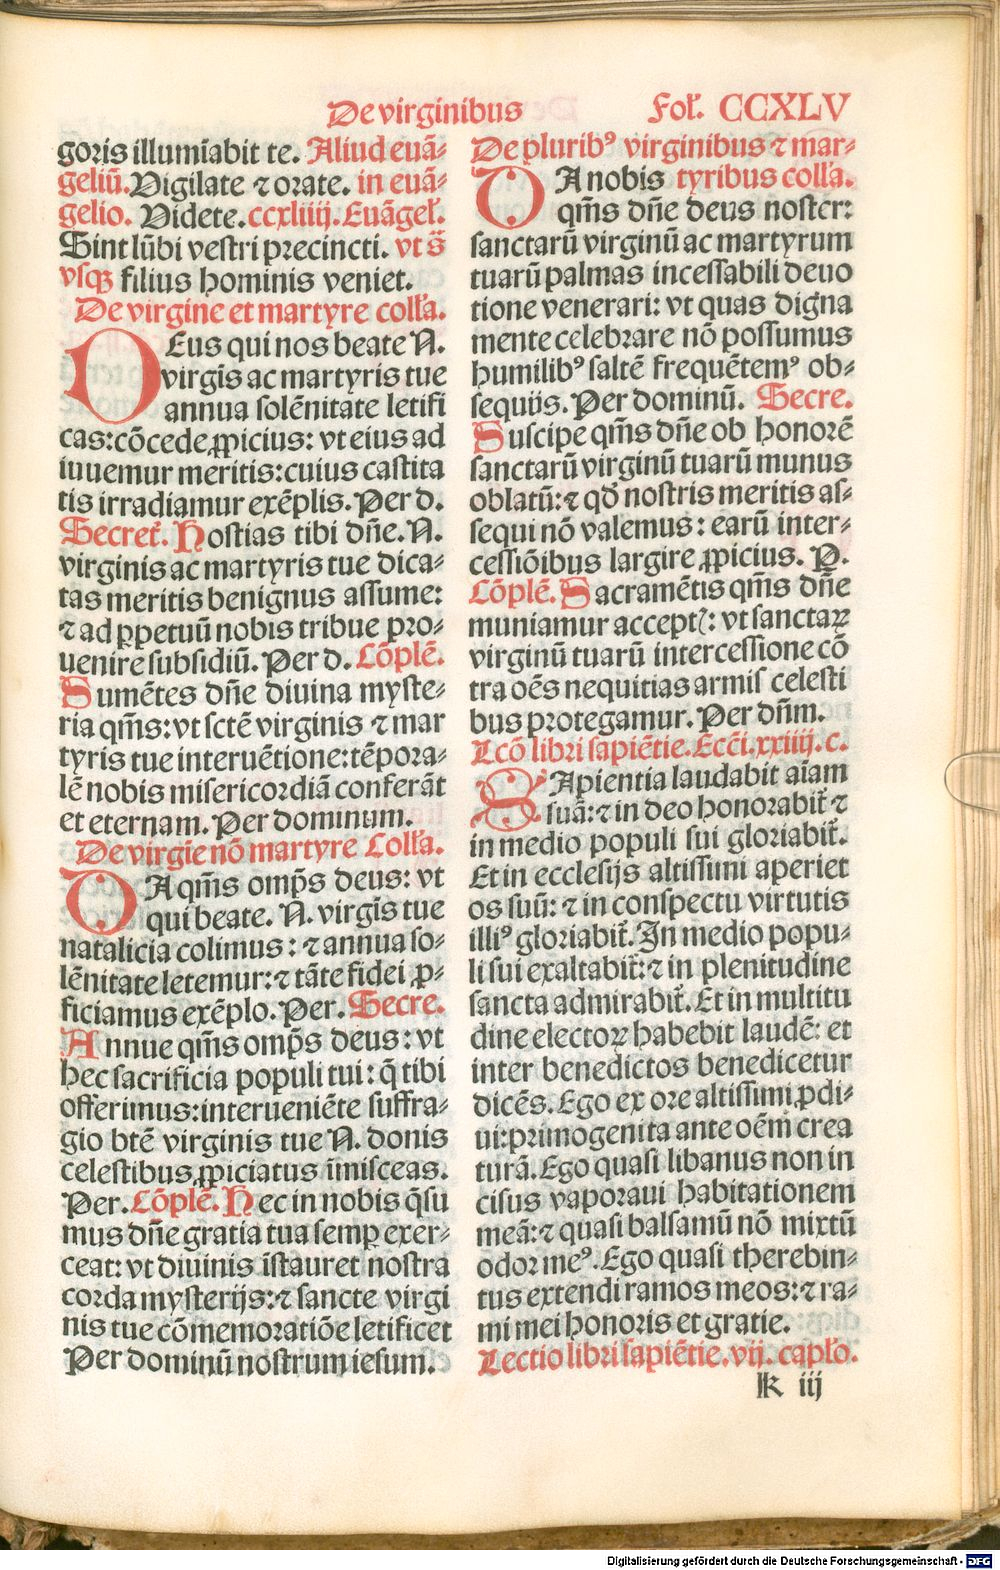 De virginibus
Fol̉. CCXLV
goris illumīabit te. Aliud euā⸗
geliū. Vigilate ⁊ orate. in euā⸗
gelio. Videte. ccxliiij. Euāgel̉.
Sint lūbi vestri precincti. vt s̄
vsqꝫ filius hominis veniet.
De virgine et martyre coll̉a.
DEus qui nos beate N.
virgīs ac martyris tue
annua solēnitate letifi
cas: cōcede ꝓpicius: vt eius ad
iuuemur meritis: cuius castita
tis irradiamur exēplis. Per d.
Secret̉. Hostias tibi dn̄e. N.
virginis ac martyris tue dica⸗
tas meritis benignus assume:
⁊ ad ꝑpetuū nobis tribue pro⸗
uenire subsidiū. Per d. Cōplē.
Sumētes dn̄e diuina myste⸗
ria qm̄s: vt sctē virginis ⁊ mar
tyris tue interuētione: tēpora⸗
lē nobis misericordiā conferāt
et eternam. Per dominum.
De virgīe nō martyre Coll̉a.
DA qm̄s omp̄s deus: vt
qui beate. N. virgīs tue
natalicia colimus: ⁊ annua so⸗
lēnitate letemur: ⁊ tāte fidei ꝓ⸗
ficiamus exēplo. Per. Secre.
Annue qm̄s omp̄s deus: vt
hec sacrificia populi tui: q̄ tibi
offerimus: interueniēte suffra⸗
gio btē virginis tue N. donis
celestibus ꝓpiciatus īmisceas.
Per. Cōplē. Hec in nobis q̄su
mus dn̄e gratia tua semꝑ exer⸗
ceat: vt diuinis īstauret nostra
corda mysterijs: ⁊ sancte virgi
nis tue cōmemoratiōe letificet
Per dominū nostrum iesum.
De pluribꝰ virginibus ⁊ mar⸗
DA nobis tyribus coll̉a.
qm̄s dn̄e deus noster:
sanctarū virginū ac martyrum
tuarū palmas incessabili deuo
tione venerari: vt quas digna
mente celebrare nō possumus
humilibꝰ saltē frequētemꝰ ob⸗
sequijs. Per dominū. Secre.
Suscipe qm̄s dn̄e ob honorē
sanctarū virginū tuarū munus
oblatū: ⁊ qd̓ nostris meritis as⸗
sequi nō valemus: earū inter⸗
cessiōibus largire ꝓpicius. P.
Cōplē. Sacramētis qm̄s dn̄e
muniamur acceptꝭ: vt sanctaꝝ
virginū tuarū intercessione cō
tra oēs nequitias armis celesti
bus protegamur. Per dn̄m.
Lcō libri sapiētie. Ecc̄i. xxiiij. c.
SApientia laudabit aīam
suā: ⁊ in deo honorabit̉ ⁊
in medio populi sui gloriabit̉.
Et in ecclesijs altissimi aperiet
os suū: ⁊ in conspectu virtutis
illiꝰ gloriabit̉. In medio popu⸗
li sui exaltabit̉: ⁊ in plenitudine
sancta admirabit̉. Et in multitu
dine electoꝝ habebit laudē: et
inter benedictos benedicetur
dicēs. Ego ex ore altissimi ꝓdi⸗
ui: primogenita ante oēm crea
turā. Ego quasi libanus non in
cisus vaporaui habitationem
meā: ⁊ quasi balsamū nō mixtū
odor meꝰ. Ego quasi therebin⸗
tus extendi ramos meos: ⁊ ra⸗
mi mei honoris et gratie.
Lectio libri sapiētie. vij. capl̓o.
k iij
Digitalisierung gefördert durch die Deutsche Forschungsgemeinschaft - DFG